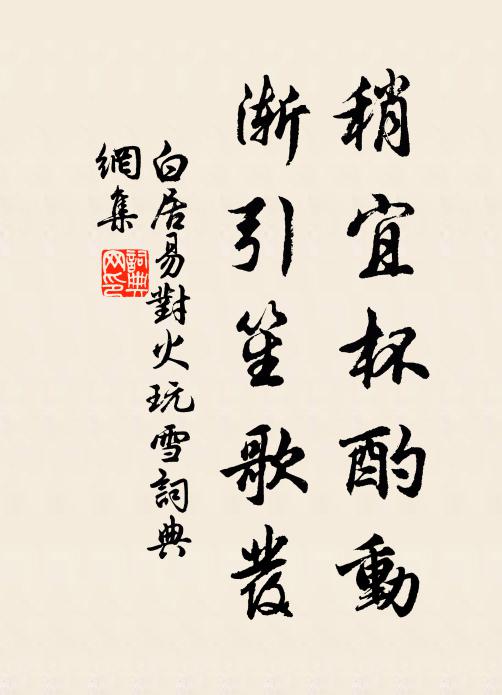 稍宜杯酌動
漸引笙歌發
白居易對火玩雪詞典
網集
詞典
网印